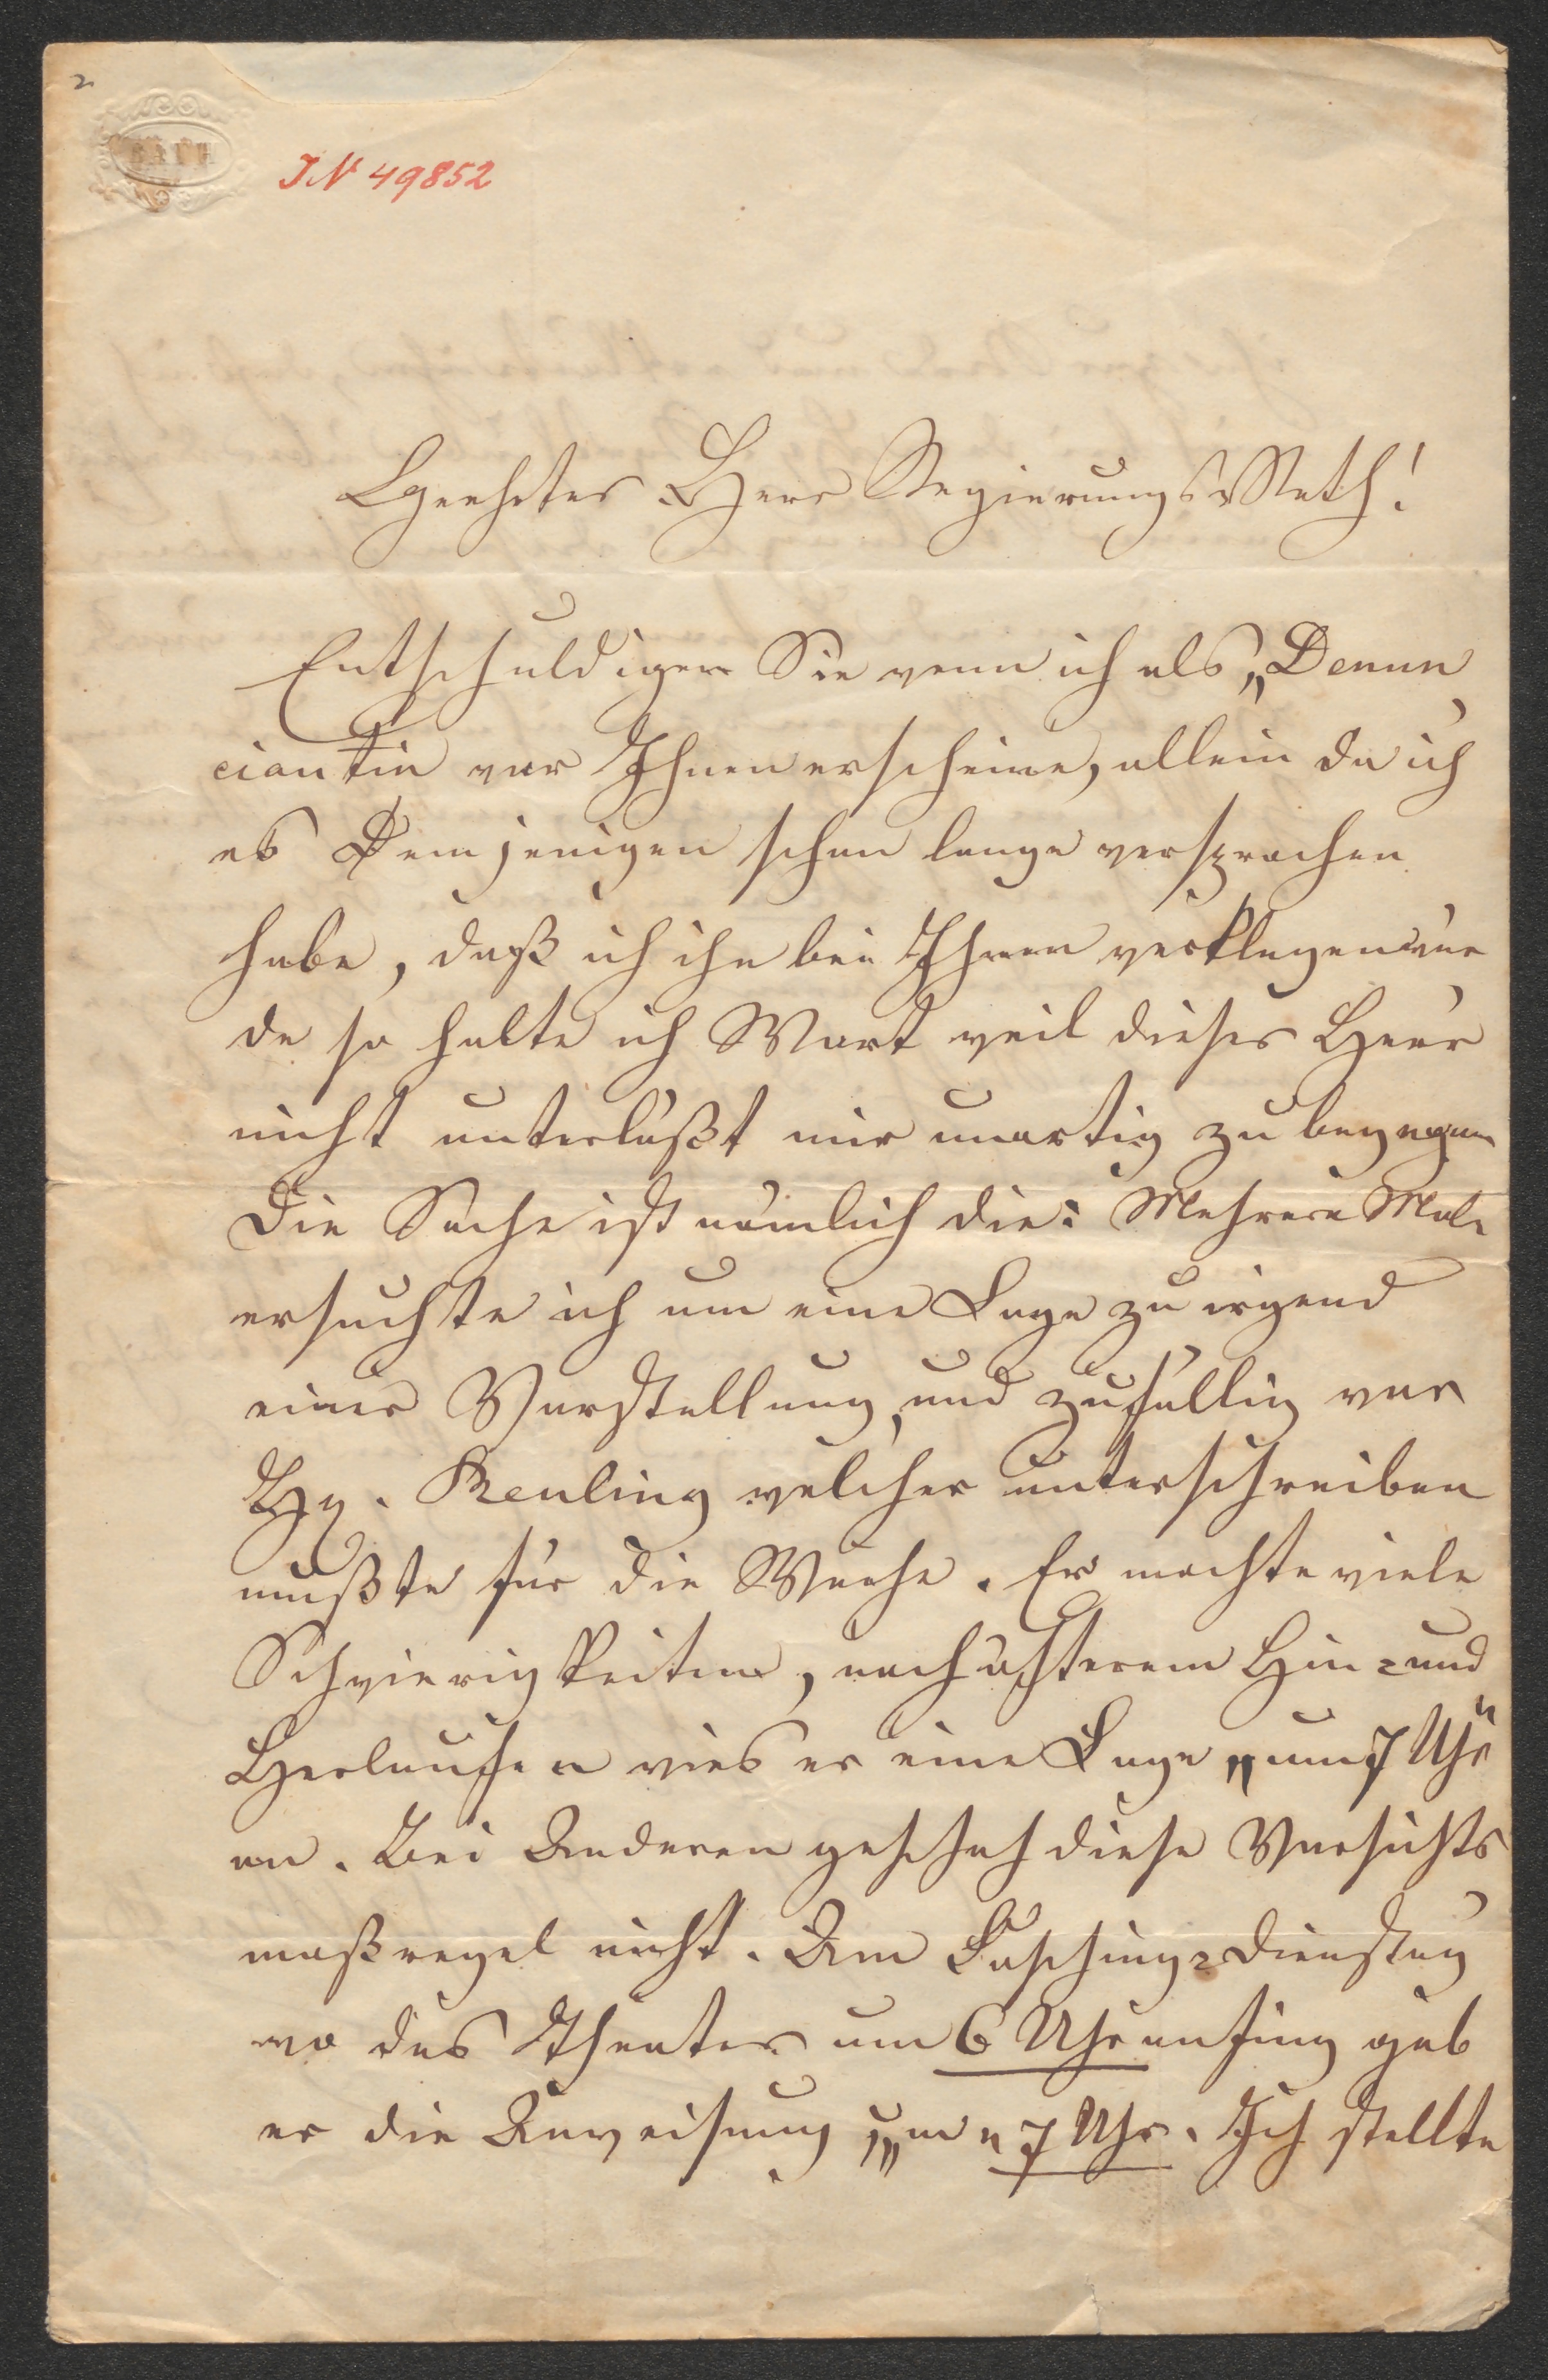 2
BATH
IN 49852
Geehrter Herr Regierungs Rath!
Entschuldigen Sie wenn ich als „Denun
ciantin vor Ihnen erscheine, allein da ich
es Demjenigen schon lange versprochen
habe, daß ich ihn bei Ihnen verklagen wür
de so halte ich Wort weil dieser Herr
nicht unterläßt mir unartig zu begegnen
Die Sache ist nämlich die: Mehrere Male
ersuchte ich um eine Loge zu irgend
einer Vorstellung, und zufällig war
Hr. Reuling welcher unterschreiben
mußte für die Woche. Er machte viele
Schwierigkeiten, nach öfterem Hin= und
Herlaufen wies er eine Loge „um 7 Uhr"
an. Bei Anderen geschah diese Vorsichts
maßregel nicht. Am Fasching=Dienstag
wo das Theater um 6 Uhr anfing gab
er die Anweisung „um" 7 Uhr. Ich stellte